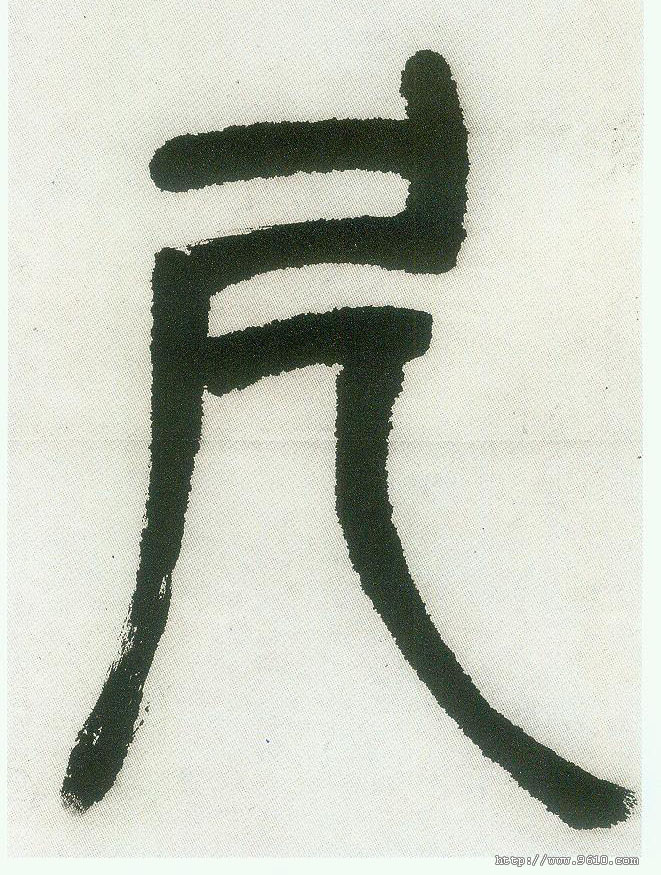 尺
http://www.9610.com